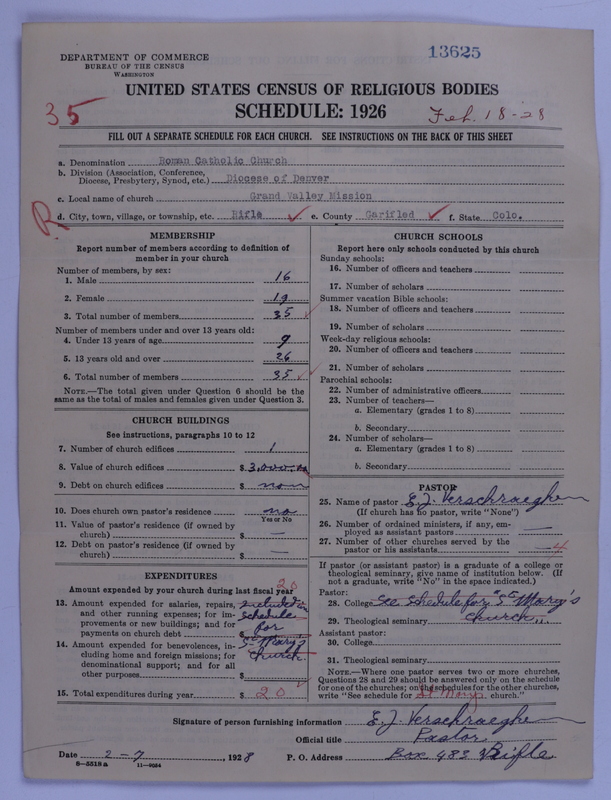 13625
DEPARTMENT OF COMMERCE
BUREAU OF THE CENSUS
WASHINGTON
UNITED STATES CENSUS OF RELIGIOUS BODIES
35 SCHEDULE: 1926 Feb. 18-28
FILL OUT A SEPARATE SCHEDULE FOR EACH CHURCH. SEE INSTRUCTIONS ON THE BACK OF THIS SHEET
a. Denomination Roman Catholic Church
b. Division (Association, Conference,
Diocese, Presbytery, Synod, etc.) Diocese of Denver
c. Local name of church Grand Valley Mission
R
d. City, town, village, or township, etc. Rifle ✓ e. County Garifled ✓ f. State Colo.
MEMBERSHIP
Report number of members according to definition of
member in your church
Number of members, by sex:
1. Male 16
2. Female 19
3. Total number of members 35
Number of members under and over 13 years old:
4. Under 13 years of age 9
5. 13 years old and over 26
6. Total number of members 35
NOTE.—The total given under Question 6 should be the
same as the total of males and females given under Question 3.
CHURCH BUILDINGS
See instructions, paragraphs 10 to 12
7. Number of church edifices 1
8. Value of church edifices $3,000.00
9. Debt on church edifices $ none
10. Does church own pastor's residence no
Yes or No
11. Value of pastor's residence (if owned by
church) $ —
12. Debt on pastor's residence (if owned by
church) $ —
EXPENDITURES
Amount expended by your church during last fiscal year
20
13. Amount expended for salaries, repairs,
and other running expenses; for im-
provements or new buildings; and for
payments on church debt $
included in
schedule
for
St Mary's
Church
14. Amount expended for benevolences, in-
cluding home and foreign missions; for
denominational support; and for all
other purposes $
15. Total expenditures during year $ 20
CHURCH SCHOOLS
Report here only schools conducted by this church
Sunday schools:
16. Number of officers and teachers
17. Number of scholars
Summer vacation Bible schools:
18. Number of officers and teachers
19. Number of scholars
Week-day religious schools:
20. Number of officers and teachers
21. Number of scholars
Parochial schools:
22. Number of administrative officers
23. Number of teachers—
a. Elementary (grades 1 to 8)
b. Secondary
24. Number of scholars—
a. Elementary (grades 1 to 8)
b. Secondary
PASTOR
25. Name of pastor E. J. Verschraeghen
(If church has no pastor, write "None")
26. Number of ordained ministers, if any, em-
ployed as assistant pastors —
27. Number of other churches served by the
pastor or his assistants 4
If pastor (or assistant pastor) is a graduate of a college or
theological seminary, give name of institution below. (If
not a graduate, write "No" in the space indicated.)
Pastor:
28. College See schedule for "St Mary's
29. Theological seminary Church"
Assistant pastor:
30. College
31. Theological seminary
NOTE.—Where one pastor serves two or more churches,
Questions 28 and 29 should be answered only on the schedule
for one of the churches; on the schedules for the other churches,
write "See schedule for St Mary's church."
Signature of person furnishing information E. J. Verschraeghen
Official title Pastor
Date 2-7, 1928 P. O. Address Box 483 Rifle
8-5518a 11-9024